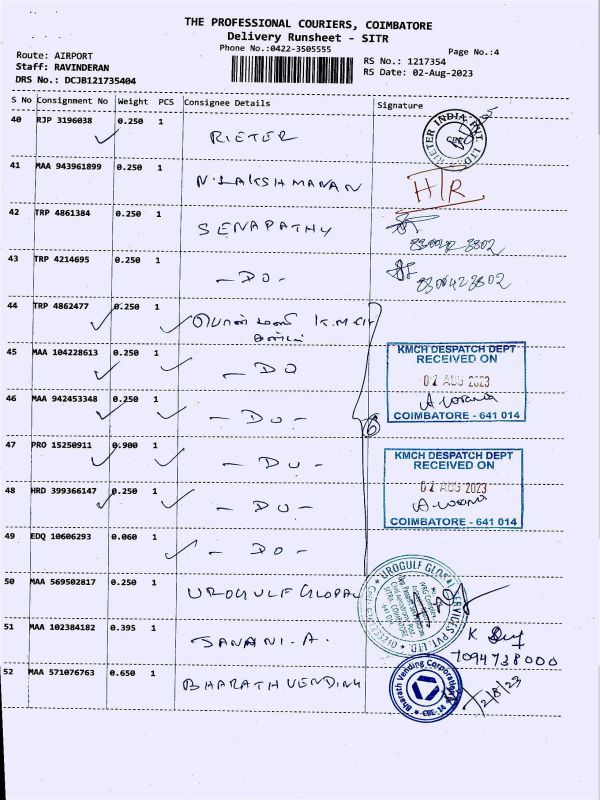 THE PROFESSIONAL COURIERS, COIMBATORE
Delivery Runsheet - SITR
Phone No.:0422-3505555
Page No.:4
Route: AIRPORT
Staff: RAVINDERAN
DRS No.: DCJB121735404
RS No.: 1217354
RS Date: 02-Aug-2023
S No Consignment No Weight PCS Consignee Details Signature
40 RJP 3196038 0.250 1 RIETER
RIETER INDIA PVT. LTD.
41 MAA 943961899 0.250 1 N.LAKSHMANAN HTR
42 TRP 4861384 0.250 1 SENAPATHY
43 TRP 4214695 0.250 1 -DO-
44 TRP 4862477 0.250 1 K.M.CH
45 MAA 104228613 0.250 1 - DO
46 MAA 942453348 0.250 1 - DO -
47 PRO 15250911 0.900 1 - DO -
48 HRD 399366147 0.250 1 - DO -
49 EDQ 10606293 0.060 1 - DO -
6
KMCH DESPATCH DEPT
RECEIVED ON
02 AUG 2023
COIMBATORE - 641 014
KMCH DESPATCH DEPT
RECEIVED ON
02 AUG 2023
COIMBATORE - 641 014
50 MAA 569502817 0.250 1 UROGULF GLOPAL
51 MAA 102384182 0.395 1 JANANI.A.
7094738000
52 MAA 571076763 0.650 1 BHARATH VENDING
Bharath Vending Corporation
CBE-14
2/8/23